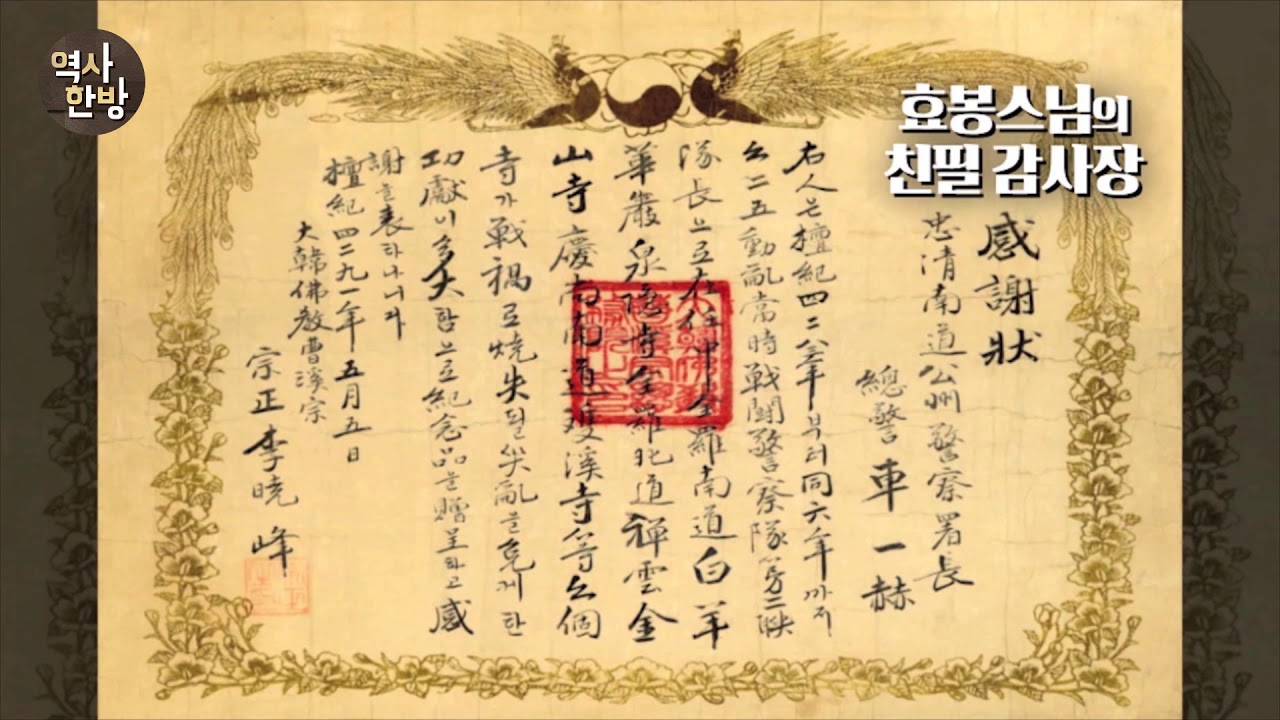 역사
한방
효봉스님의
친필 감사장
感謝狀
忠清南道公州警察署長
總警 車一赫
右人은檀紀四二八三年부터同六年까지
六二五動亂當時戰鬪警察隊第二聯
隊長으로在任中全羅南道白羊
華嚴泉隱寺全羅北道禪雲金
山寺慶尚南道雙溪寺等六個
寺가戰禍로燒失될災亂을免케한
功獻이多大함으로紀念品을贈呈하고感
謝를表하나니다
檀紀四二九一年五月五日
大韓佛敎曹溪宗
宗正李曉峰